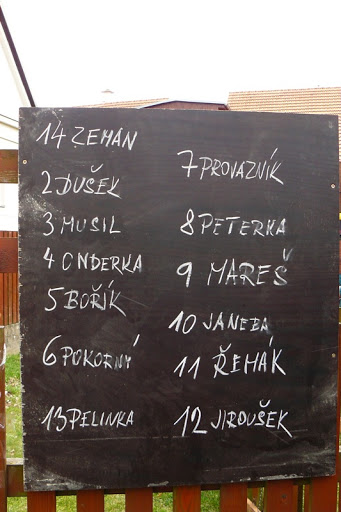 14 ZEMAN
2 DUŠEK
3 MUSIL
4 ONDERKA
5 BOŘÍK
6 POKORNÝ
13 PELINKA
7 PROVAZNÍK
8 PETERKA
9 MAREŠ
10 JANEBA
11 ŘEHÁK
12 JIROUŠEK